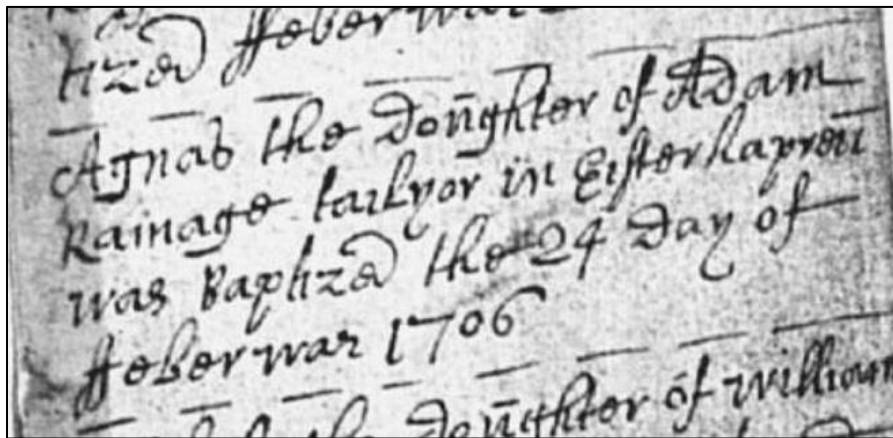 tized ffeberwar
Agnas the doughter of Adam
Rainage tailyor in Eisterhapreu
was Baptized the 24 day of
ffeberwar 1706
the doughter of william